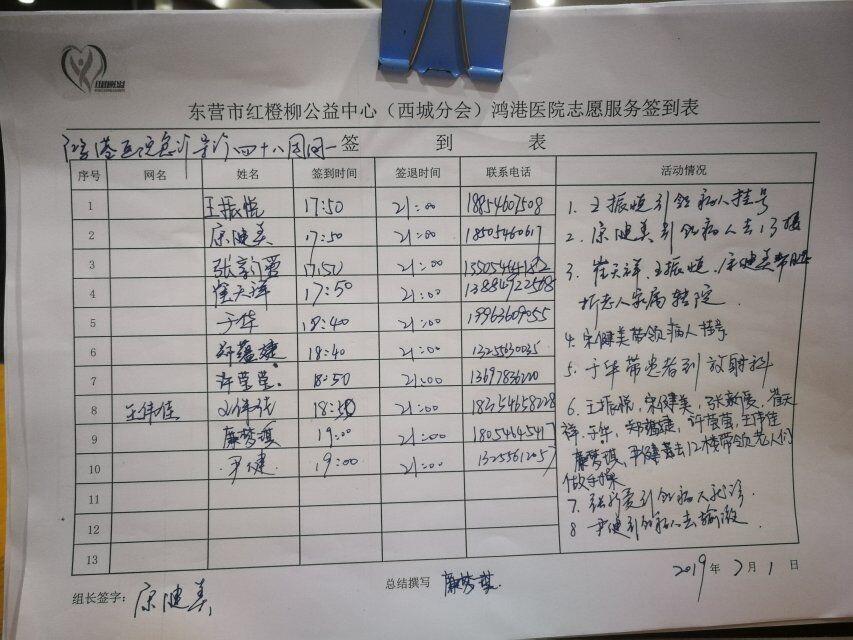 东营市红橙柳公益中心（西城分会）鸿港医院志愿服务签到表
鸿港医院急诊导诊四十八周周一 签 到 表
序号 网名 姓名 签到时间 签退时间 联系电话 活动情况
1 王振悦 17:50 21:00 18854607508
2 宋健美 17:50 21:00 18505460617
3 张新爱 17:50 21:00
4 崔天祥 17:50 21:00
5 于华 18:40 21:00 19963609055
6 郑蕴婕 18:40 21:00 13255630035
7 许莹莹 18:50 21:00 13697836220
8 王伟佳 18:50 21:00 18254658228
9 廉梦琪 19:00 21:00 18054645417
10 尹健 19:00 21:00 13255612057
11
12
13
1. 王振悦引领病人挂号
2. 宋健美引领病人去13楼
3. 崔天祥、王振悦、宋健美帮助
折老人家属转院
4. 宋健美带领病人挂号
5. 于华带患者到放射科
6. 王振悦，宋健美，张新爱，崔天
祥，于华，郑蕴婕，许莹莹，王伟佳
廉梦琪，尹健去12楼带领老人们
做手操
7. 张新爱引领病人就诊
8 尹健引领病人去输液
组长签字：宋健美
总结撰写 廉梦琪
2019年7月1日